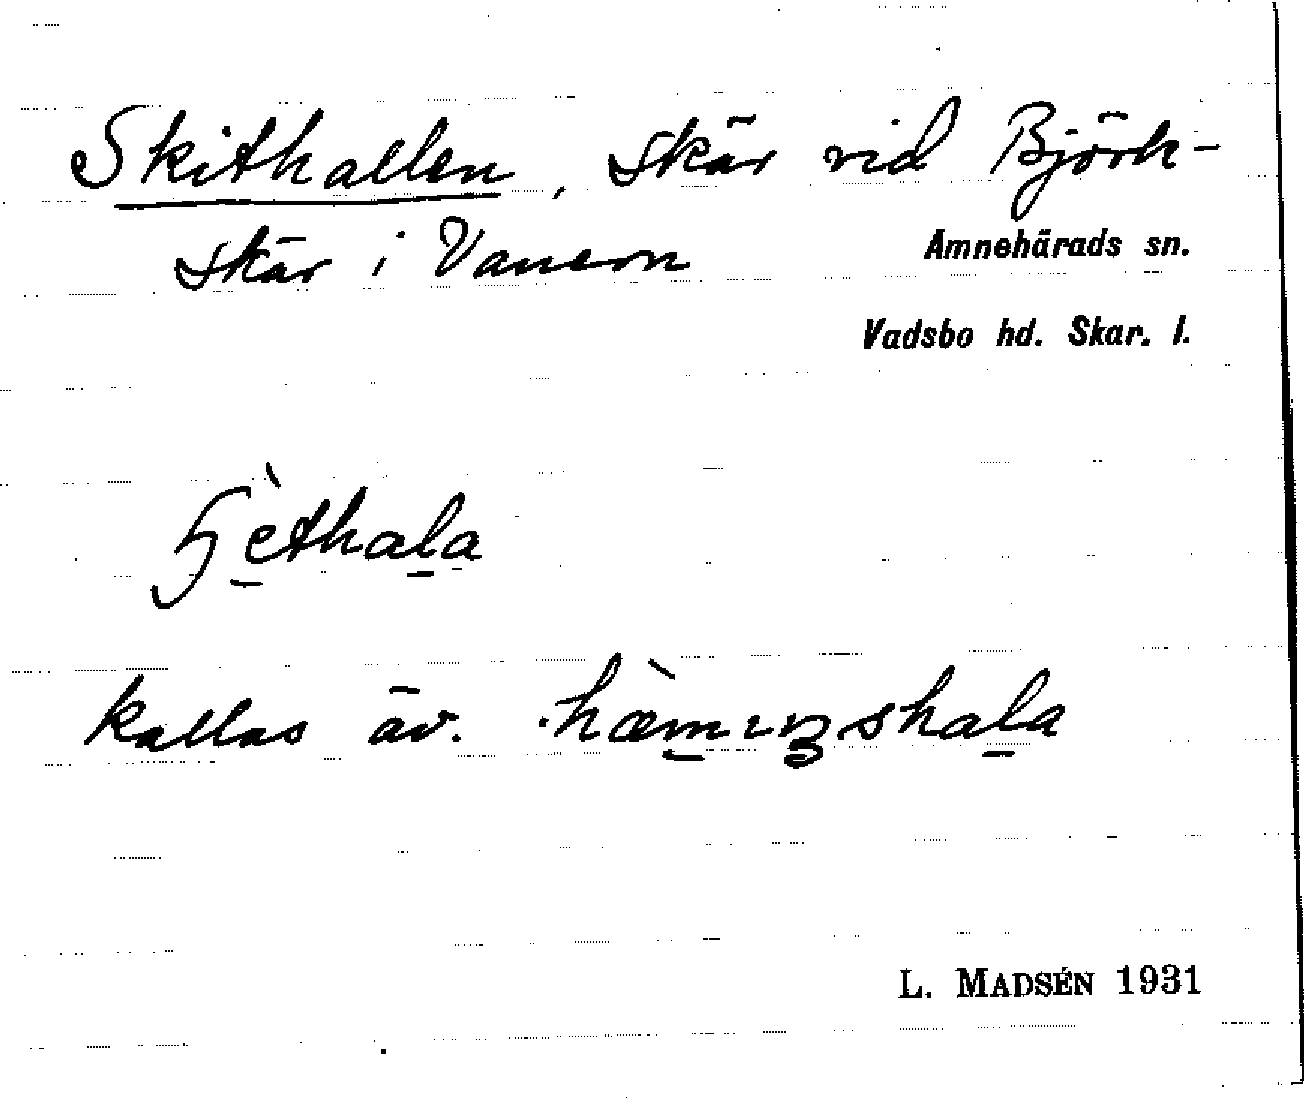 Skithallen, skär vid Björk-
skär i Vanern
Amnehärads sn.
Vadsbo hd. Skar. l.
ɧèthala
kallas äv. hæ̀mɪŋshala
L. MADSÉN 1931